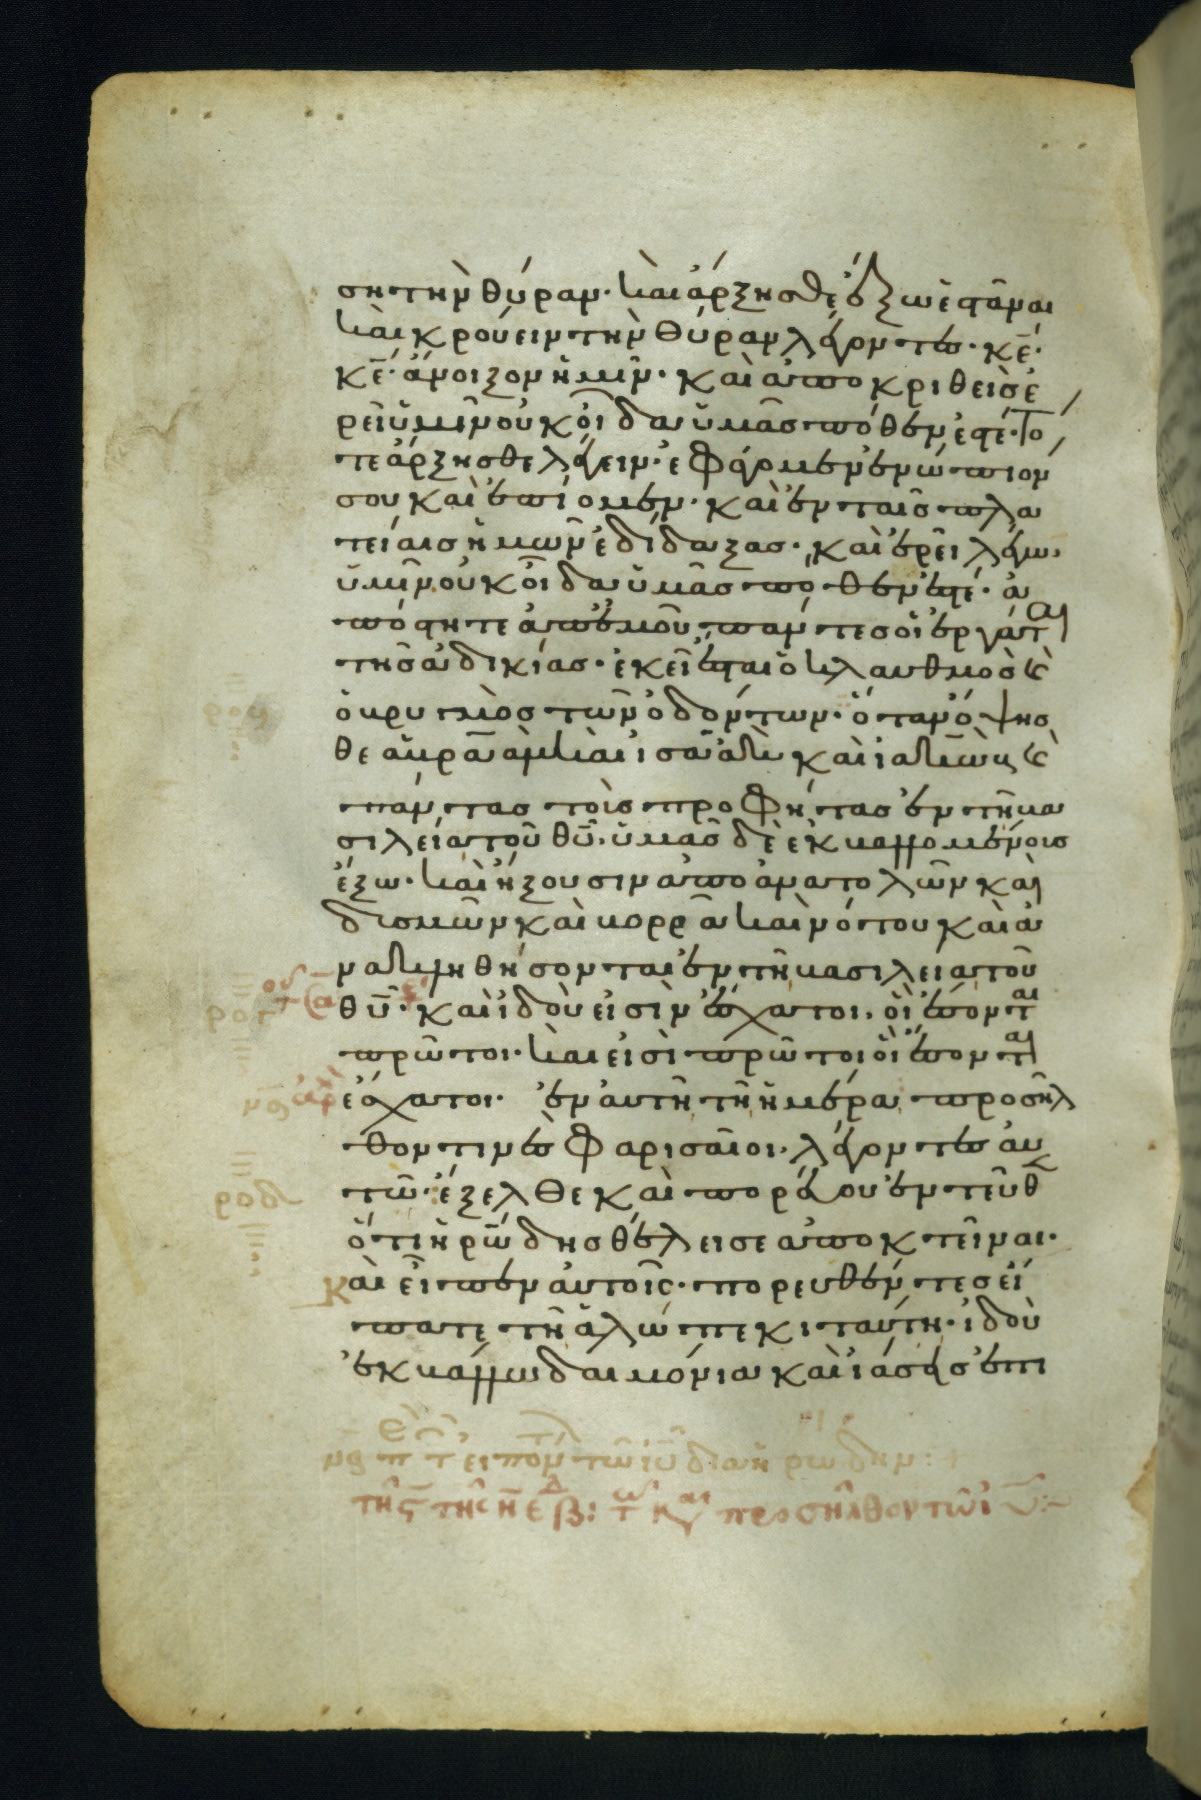 ση την θύραν· καὶ ἄρξησθε ἔξω ἑστᾶναι
καὶ κρούειν τὴν θύραν λέγοντες· κε̄·
κε̄· ἄνοιξον ἡμῖν· καὶ ἀποκριθεὶς ἐ
ρεῖ ὑμῖν οὐκ οἶδα ὑμᾶς πόθεν ἐστέ· Τό
τε ἄρξησθε λέγειν· ἐφάγομεν ἐνώπιόν
σου καὶ ἐπίομεν· καὶ ἐν ταῖς πλα
τείαις ἡμῶν ἐδίδαξας· καὶ ἐρεῖ λέγω
ὑμῖν οὐκ οἶδα ὑμᾶς πόθεν ἐστέ· ἀ
πόστητε ἀπ' ἐμοῦ πάντες οἱ ἐργάται
τῆς ἀδικίας· ἐκεῖ ἔσται ὁ κλαυθμὸς καὶ
ὁ βρυγμὸς τῶν ὀδόντων· ὅταν ὄψησ
θε ἀβραὰμ καὶ ἰσαὰκ καὶ ἰακὼβ καὶ
πάντας τοὺς προφήτας ἐν τῆ βα
σιλεία τοῦ θῡ· ὑμᾶς δὲ ἐκβαλλομένους
ἔξω· καὶ ἥξουσιν ἀπὸ ἀνατολῶν καὶ
δυσμῶν καὶ βορρᾶ καὶ νότου καὶ ἀ
νακληθήσονται ἐν τῆ βασιλεία τοῦ
θῡ· καὶ ἰδοὺ εἰσὶν ἔσχατοι· οἳ ἔσονται
πρῶτοι· καὶ εἰσὶ πρῶτοι οἳ ἔσονται
ἔσχατοι· ἐν αὐτῆ τῆ ἡμέρα προσῆλ
θον τινὲς φαρισαῖοι· λέγοντες αὐ
τῶ· ἔξελθε καὶ πορεύου ἐντεῦθ
ὅτι ἡρώδης θέλει σε ἀποκτεῖναι·
Καὶ εἶπεν αὐτοῖς· πορευθέντες εἴ
πατε τῆ ἀλώπεκι ταύτη· ἰδοὺ
ἐκβάλλω δαιμόνια καὶ ἰάσεις ἐπι
ροδ